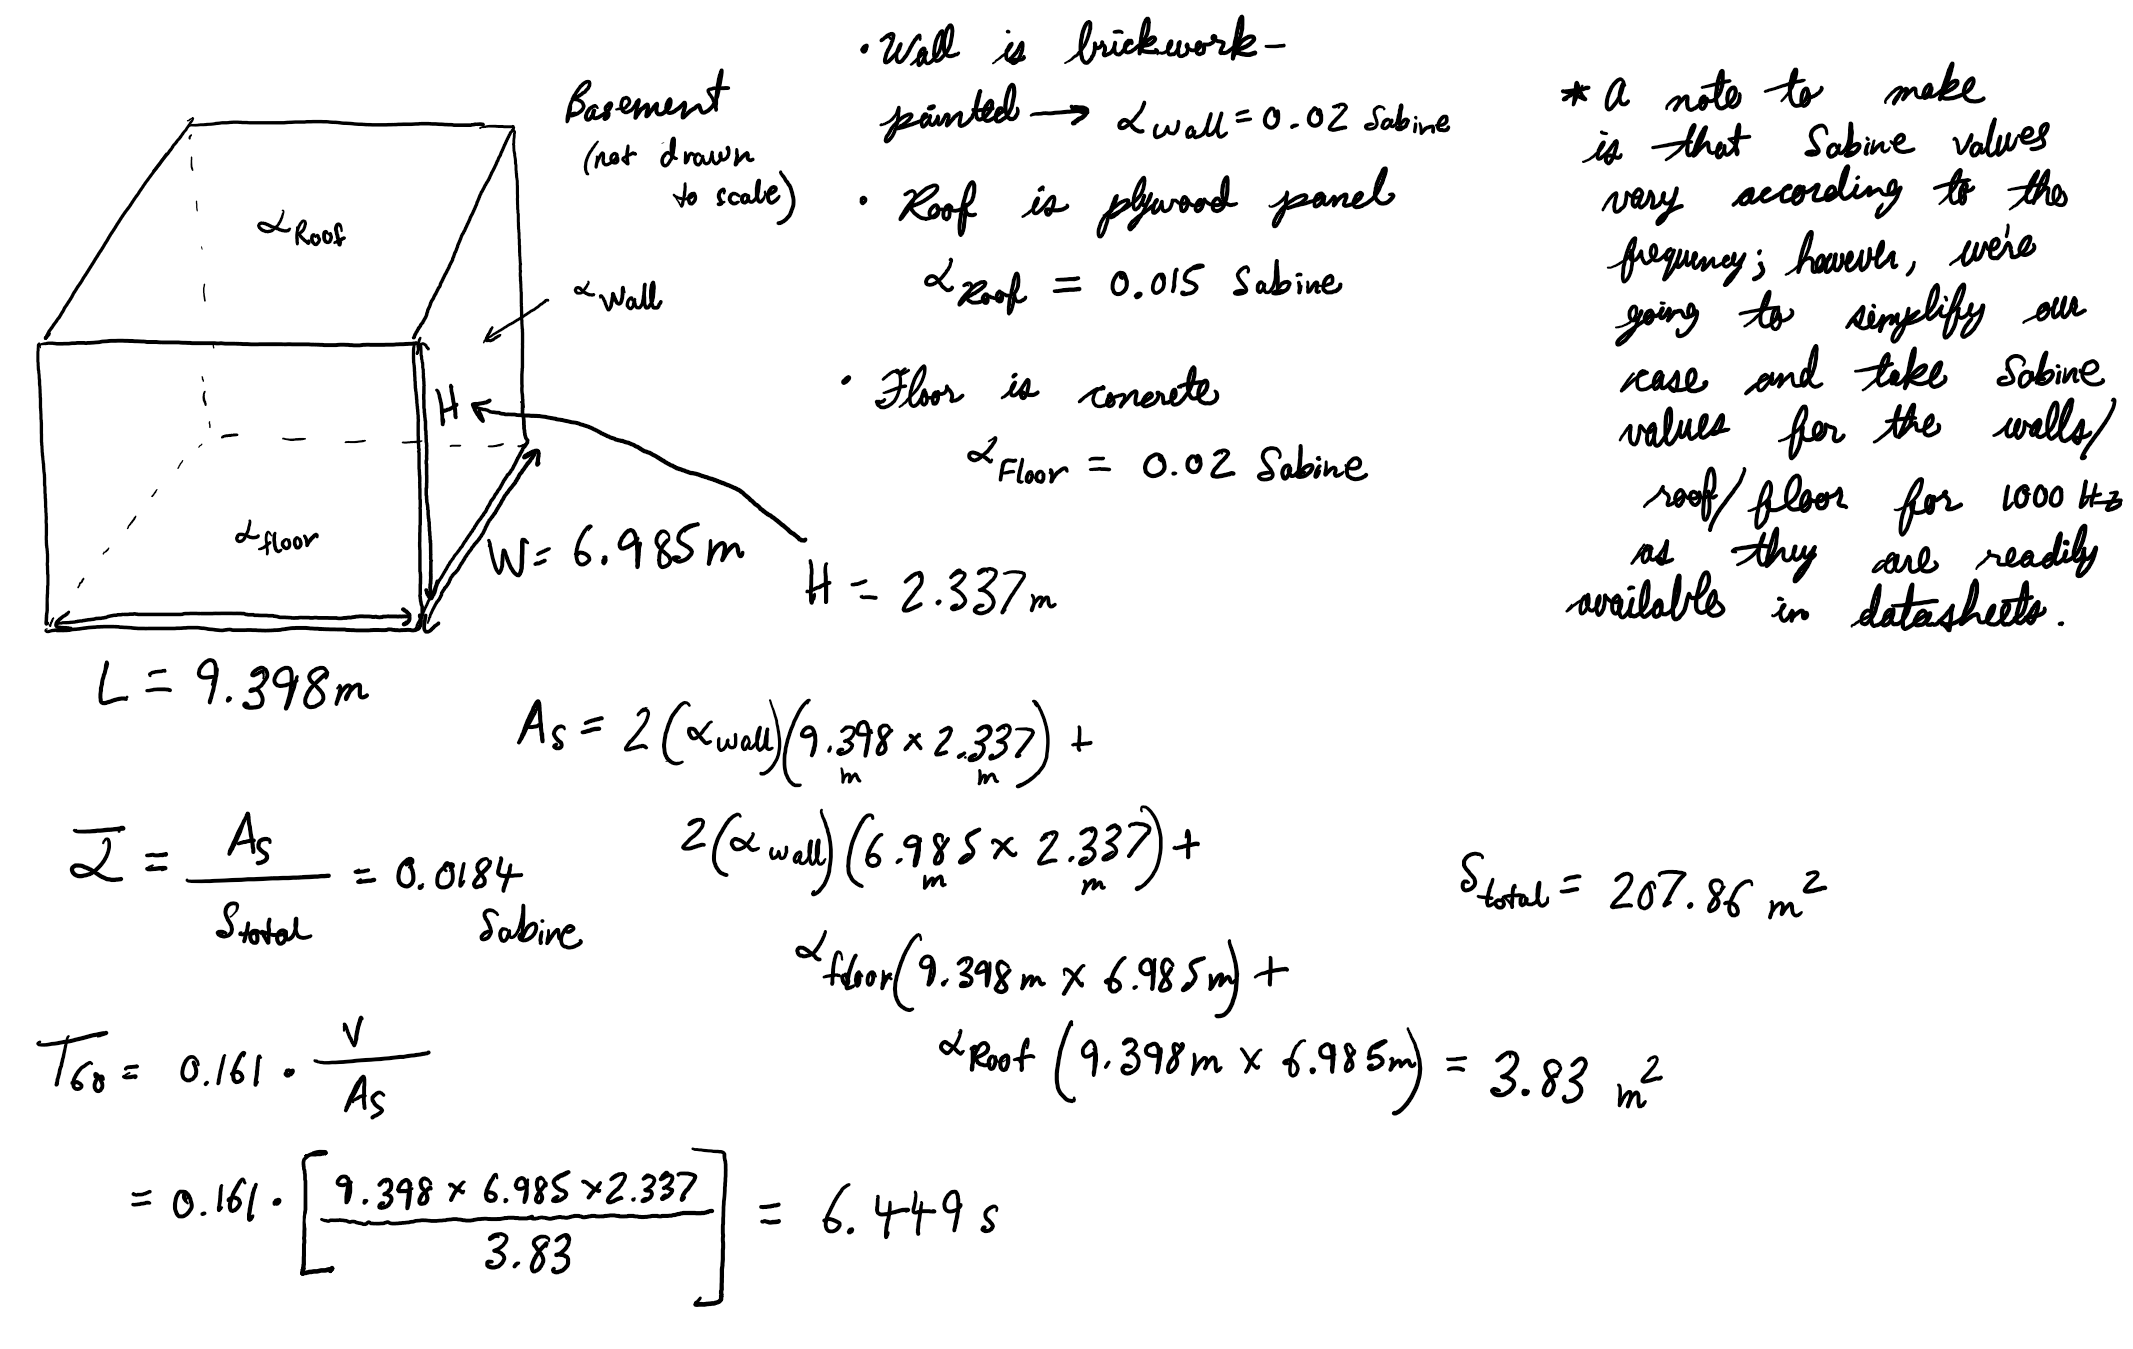 Basement
(not drawn
to scale)
α Roof
α Wall
H
α floor
W = 6.985 m
H = 2.337 m
L = 9.398 m
• Wall is brickwork –
painted → α wall = 0.02 Sabine
• Roof is plywood panel
α Roof = 0.015 Sabine
• Floor is concrete
α Floor = 0.02 Sabine
* A note to make
is that Sabine values
vary according to the
frequency; however, we're
going to simplify our
case and take Sabine
values for the walls/
roof/floor for 1000 Hz
as they are readily
available in datasheets.
As = 2(α wall)(9.398 m × 2.337 m) +
2(α wall)(6.985 m × 2.337 m) +
α floor(9.398 m × 6.985 m) +
α Roof (9.398 m × 6.985 m) = 3.83 m²
ᾱ = As / S total = 0.0184 Sabine
S total = 207.86 m²
T60 = 0.161 · V / As
= 0.161 · [9.398 × 6.985 × 2.337 / 3.83] = 6.449 s